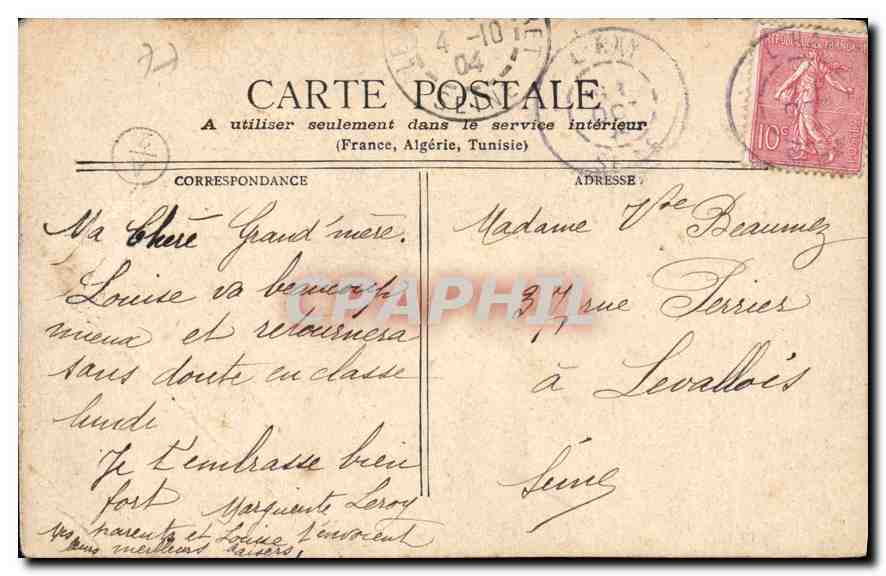 77
CARTE POSTALE
A utiliser seulement dans le service intérieur
(France, Algérie, Tunisie)
4 -10
04
SEINE
L'HAY
10c
POSTES
CORRESPONDANCE
ADRESSE
Ma Chère Grand'mère.
Louise va beaucoup
mieux et retournera
sans doute en classe
lundi
Je t'embrasse bien
fort Marguerite Leroy
Mes parents et Louise t'envoient
leurs meilleurs baisers,
Madame Vve Beaumez
37 rue Perrier
à Levallois
Seine
CPAPHIL